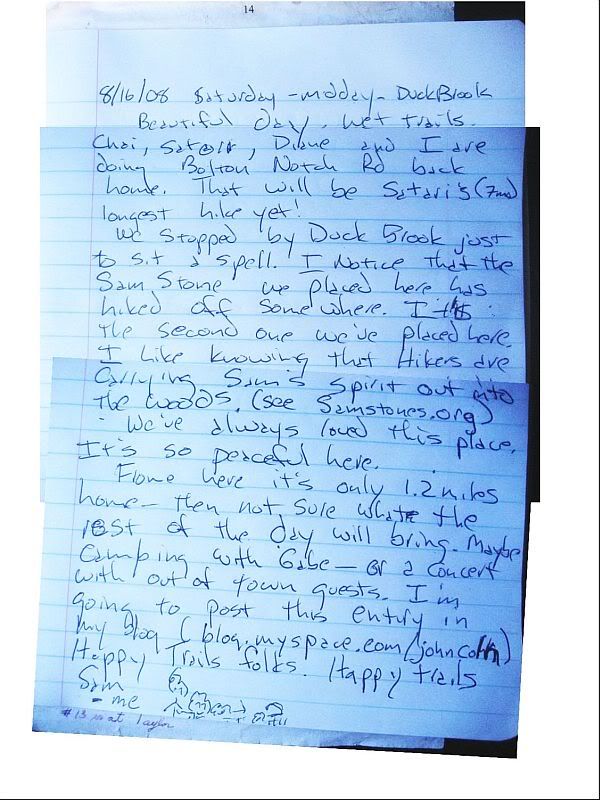 14
8/16/08 Saturday - midday - Duck Brook
Beautiful day, wet trails.
Chai, Satari, Diane and I are
doing Bolton Notch Rd back
home. That will be Satari's (7mo)
longest hike yet!
We stopped by Duck Brook just
to sit a spell. I notice that the
Sam Stone we placed here has
hiked off somewhere. It is
the second one we've placed here.
I like knowing that Hikers are
carrying Sam's spirit out into
the woods. (see Samstones.org)
We've always loved this place.
It's so peaceful here.
From here it's only 1.2 miles
home - then not sure what the
rest of the day will bring. Maybe
camping with Gabe - or a concert
with out of town guests. I'm
going to post this entry in
my blog (blog.myspace.com/johncolth)
Happy Trails folks. Happy trails
Sam
- me
#13 at Taylor